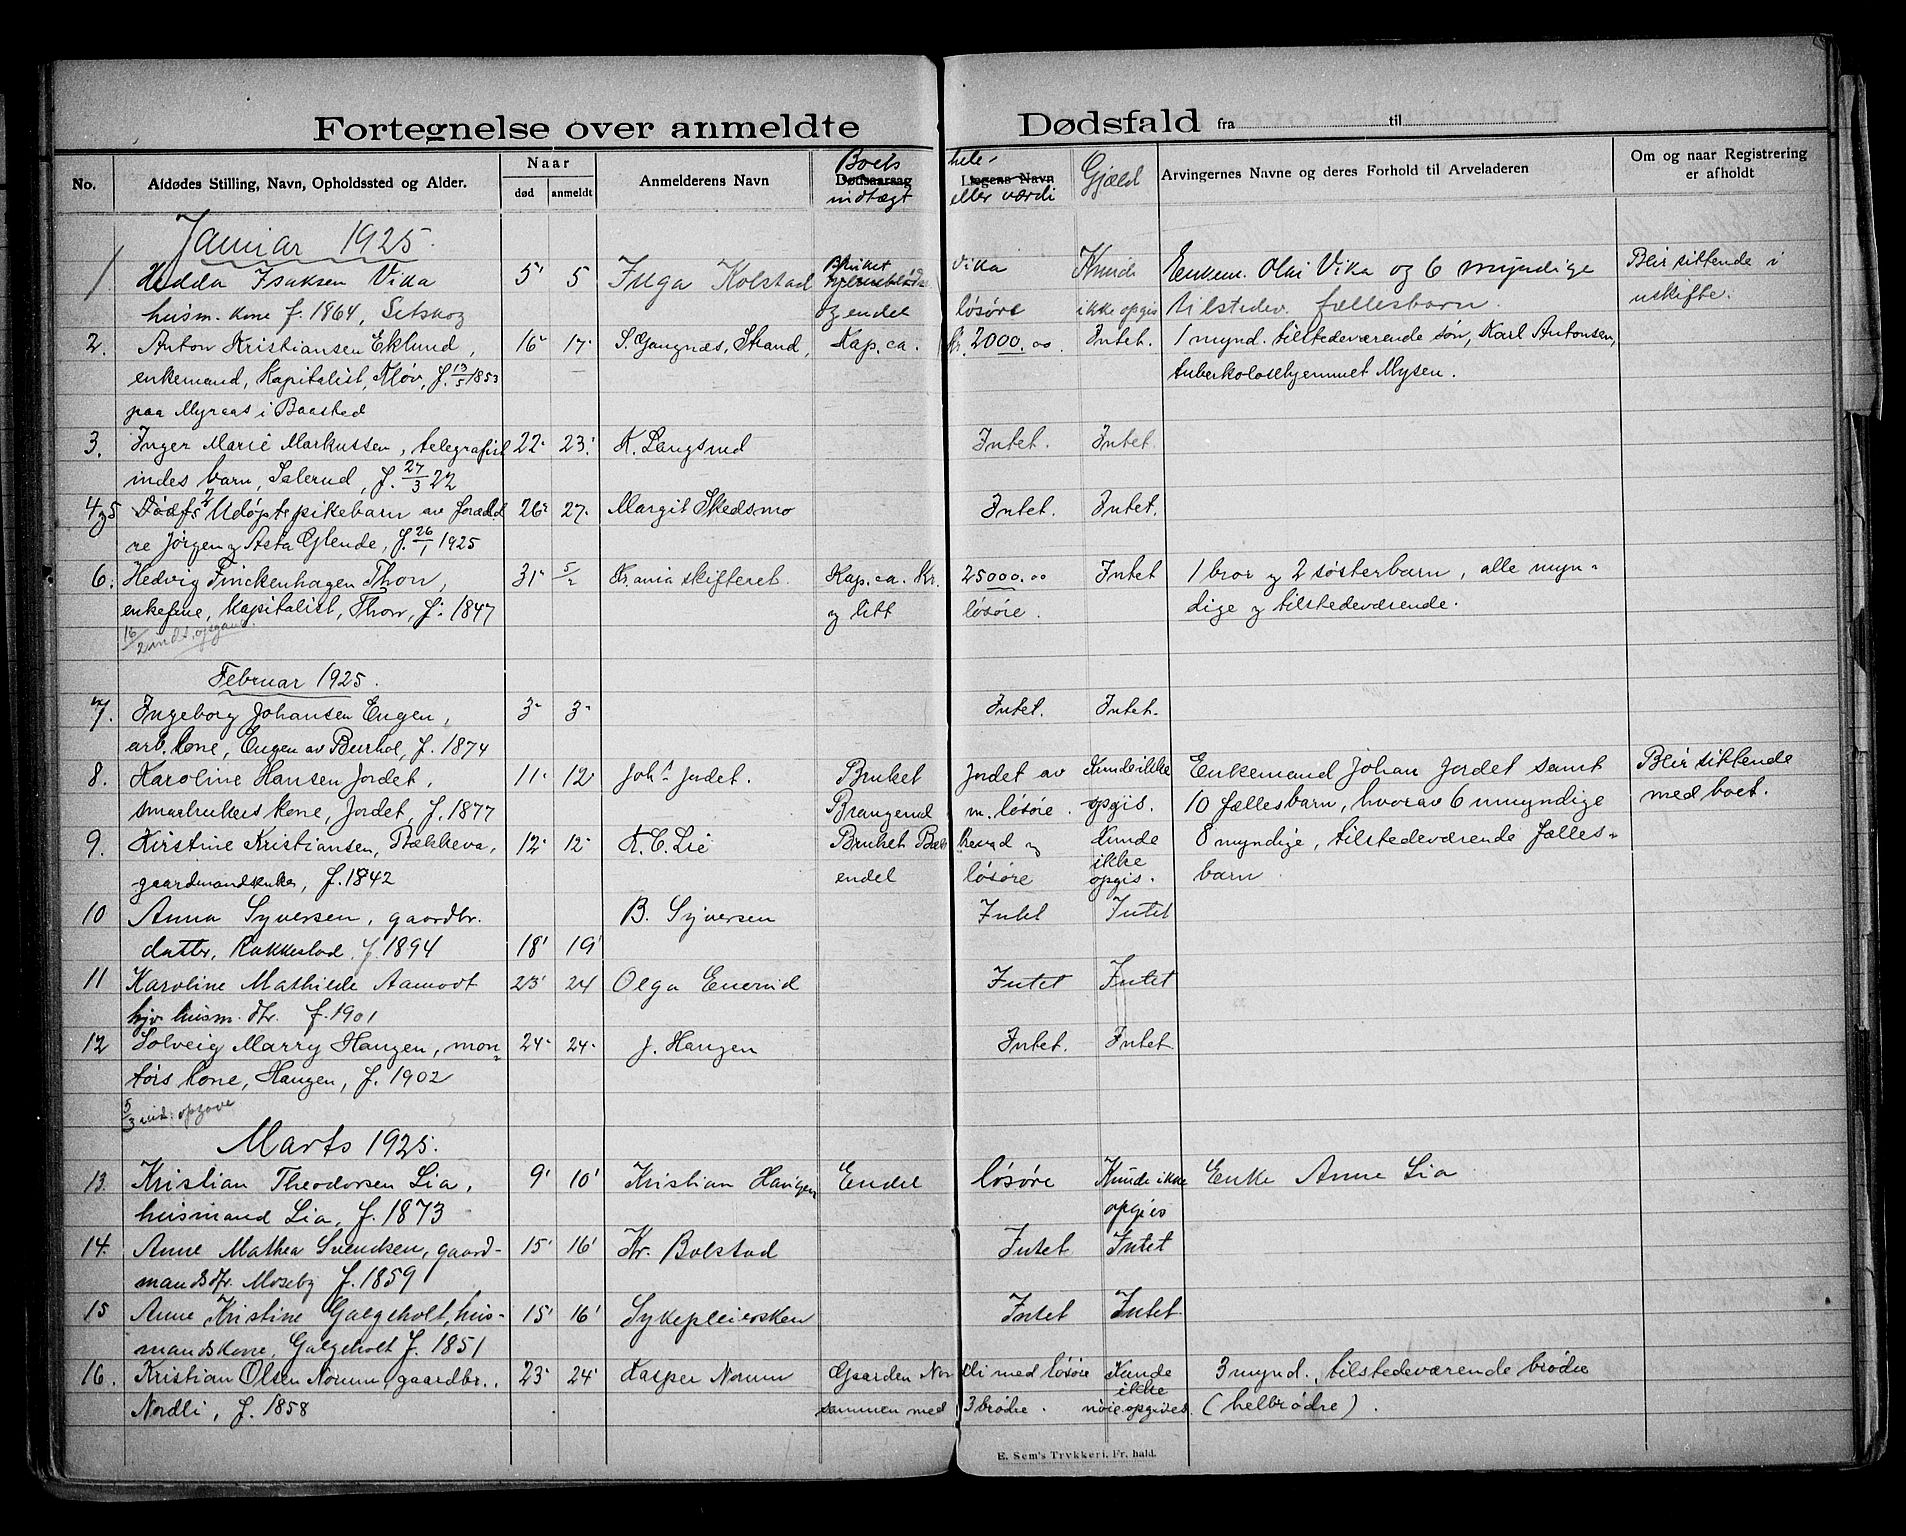 Fortegnelse over anmeldte Dødsfald fra til
No. Afdødes Stilling, Navn, Opholdssted og Alder. Naar død anmeldt Anmelderens Navn Dødsaarsag Boets indtægt Lægens Navn eller værdi Gjæld Arvingernes Navne og deres Forhold til Arveladeren Om og naar Registrering er afholdt
Januar 1925.
1 Hedda Isaksen Vika 5 5 Inga Kolstad Bruket Vika Kunde Enkem. Olai Vika og 6 myndige Blir sittende i
husm. kone f. 1864, Setskog og endel løsøre ikke opgis tilstedev. fællesbarn. uskifte.
2. Anton Kristiansen Eklund, 16 17 S. Gangnæs, Strand, Kap. ca. kr. 2000.00. Intet. 1 mynd. tilstedeværende søn, Karl Antonsen,
enkemand, Kapitalist, Kløv, f. 13/5 1853 tuberkolosehjemmet Mysen.
paa Myraas i Baastad
3. Inger Marie Markussen, telegrafist 22 23 K. Langsrud Intet. Intet.
indes barn, Salerud, f. 27/3 22
4 og 5 Dødf. 2 Udøpte pikebarn av foræld 26 27 Margit Skedsmo Intet. Intet.
re Jørgen og Asta Glende, f. 26/1 1925
6. Hedvig Finckenhagen Thon, 31 5/2 Kr.ania skifteret. Kap. ca. Kr. 25000.00 Intet 1 bror og 2 søsterbarn, alle myn-
enkefrue, Kapitalist, Thon, f. 1847 og litt løsøre. dige og tilstedeværende.
16/2 inds. opgave.
Februar 1925.
7. Ingeborg Johansen Engen, 3 3 Intet. Intet.
arb. kone, Engen av Burhol, f. 1874
8. Karoline Hansen Jordet, 11 12 Joh. Jordet. Bruket Jordet av Kunde ikke Enkemand Johan Jordet samt Blir sittende
smaabrukers kone, Jordet, f. 1877 Brangerud m. løsøre. opgis. 10 fællesbarn, hvorav 6 umyndige med boet.
9. Kirstine Kristiansen, Bækkevar, 12 12 K. C. Lie Bruket Bæk kevad og Kunde 8 myndige, tilstedeværende fælles-
gaardmandsenke, f. 1842 endel løsøre ikke opgis. barn
10 Anna Syversen, gaardbr. B. Syversen Intet Intet
datter, Rakkestad f 1894 18 19
11 Karoline Mathilde Aamodt 23 24 Olga Enerud Intet Intet
hjv. husm. dtr. f. 1901
12 Solveig Marry Haugen, mon- 24 24 J. Haugen Intet. Intet
törs kone, Haugen, f. 1902
5/3 ind. opgave
Marts 1925.
13. Kristian Theodorsen Lia, 9 10 Kristian Haugen Endel løsøre Kunde ikke Enke Anne Lia
husmand Lia, f. 1873 opgies
14. Anne Mathea Svendsen, gaard- 15 16 Kr. Bolstad Intet Intet
mandsdtr. Moseby f. 1859
15 Anne Kristine Galgeholt, hus- 15 16 Sykepleiersken Intet Intet.
mandskone, Galgeholt f. 1851
16. Kristian Olsen Norum, gaardbr., 23 24 Kasper Norum Gaarden Nor dli med løsøre Kunde 3 mynd., tilstedeværende brødre
Nordli, f. 1858 sammen med 3 brødre. ikke nøie opgives. (helbrødre).
E. Sem's Trykkeri, Fr.hald.